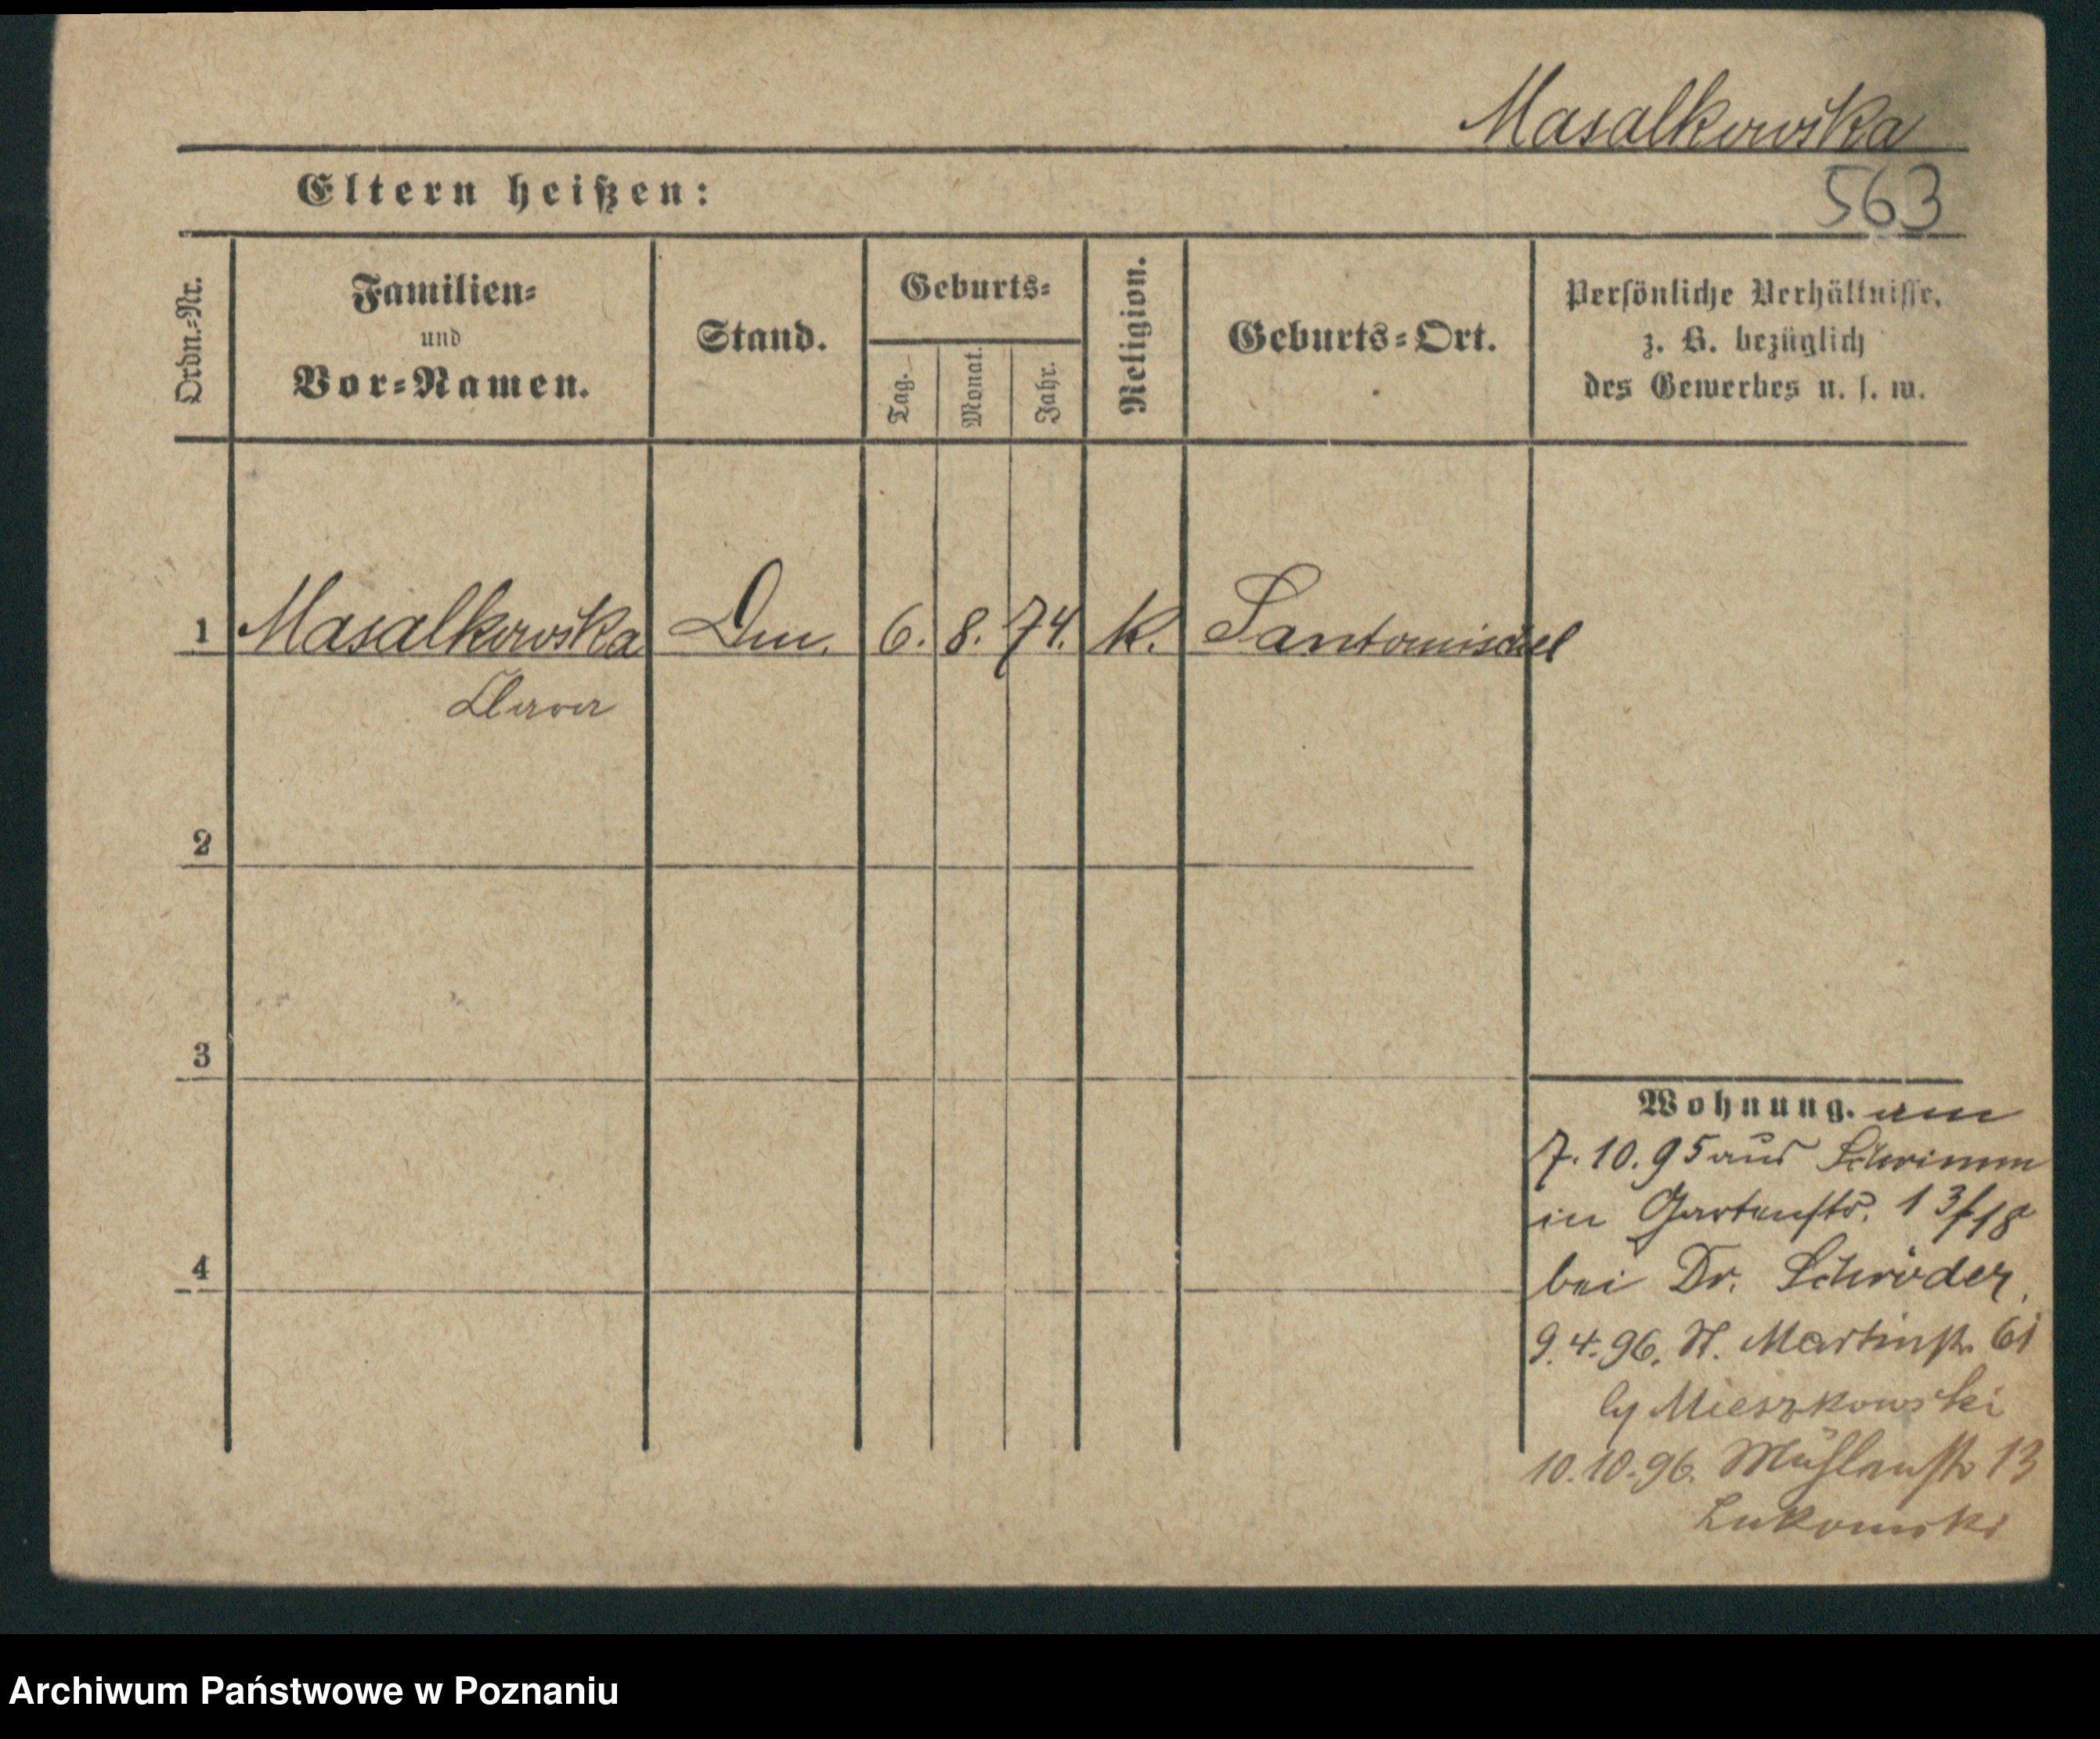 Masalkowska
563
Eltern heißen:
Ordn.=Nr.
Familien=
und
Vor=Namen.
Stand.
Geburts=
Tag.
Monat.
Jahr.
Religion.
Geburts=Ort.
Persönliche Verhältnisse,
z. B. bezüglich
des Gewerbes u. s. w.
1 Masalkowska Dm. 6. 8. 74. k. Santomischel
Clara
2
3
4
Wohnung. am
7. 10. 95 aus Schrimm
in Gartenstr. 13
bei Dr. Schröder.
9. 4. 96. St. Martinstr. 61
Mieszkowski
10. 10. 96. Mühlenstr 13
Lukomski
Archiwum Państwowe w Poznaniu